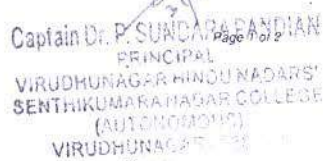 Captain Dr. P. SUNDARAPANDIAN
Page 1 of 2
PRINCIPAL
VIRUDHUNAGAR HINDU NADARS'
SENTHIKUMARA NADAR COLLEGE
(AUTONOMOUS)
VIRUDHUNAGAR